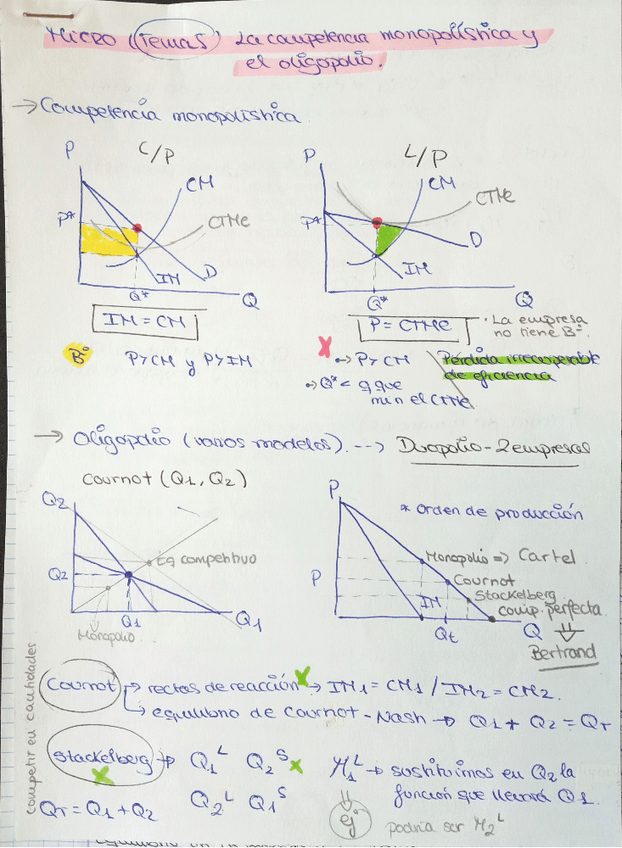 MICRO (Temas) La competencia monopolística y
el oligopolio.
→ Competencia monopolística.
P C/P
CM
CTMe
P*
IM D
Q* Q
IM = CM
Bº P>CM y P>IM
P L/P
CM
CTMe
P*
D
IM
Q* Q
P = CTMe
· La empresa
no tiene Bº.
x → P>CM
Pérdida irrecuperable
de eficiencia
→ Q* < q que
min el CTMe
→ Oligopolio (varios modelos). --→ Duopolio - 2 empresas
Cournot (Q1, Q2)
Q2
Eq competitivo
Q2
Q1 Q1
Monopolio
P
* Orden de producción
Monopolio => Cartel
P
Cournot
Stackelberg
IM comp. perfecta
Qt Q
Bertrand
competir en cantidades
Cournot → rectas de reacción x → IM1 = CM1 / IM2 = CM2.
→ equilibrio de Cournot-Nash → Q1 + Q2 = QT
Stackelberg → Q1ᴸ Q2ˢ x
x
QT = Q1 + Q2 Q2ᴸ Q1ˢ
π1ᴸ → sustituimos en Q2 la
función que llevará Q1.
ej
podría ser π2ᴸ